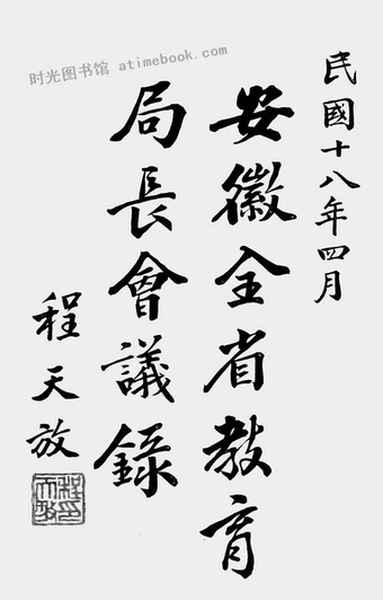 时光图书馆 atimebook.com
民國十八年四月
安徽全省教育
局長會議錄
程天放